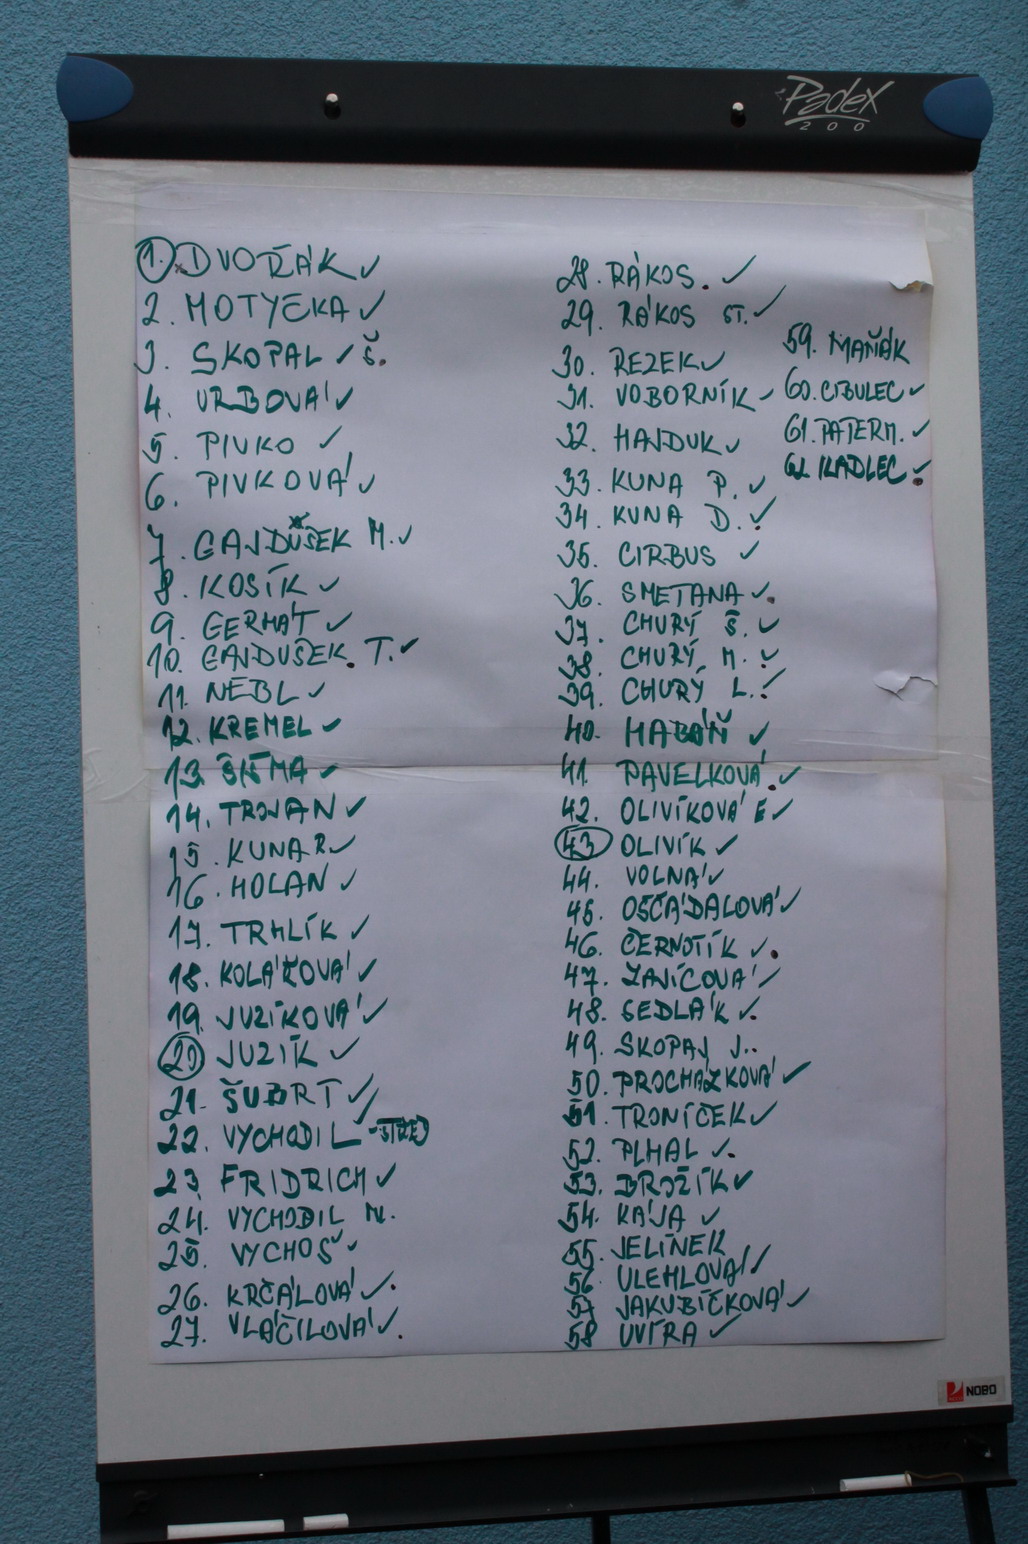 Padex
200
1. DVOŘÁK ✓
2. MOTYČKA ✓
3. SKOPAL ✓ Š.
4. VRBOVÁ ✓
5. PIVKO ✓
6. PIVKOVÁ ✓
7. GAJDŮŠEK M. ✓
8. KOSÍK ✓
9. GERHÁT ✓
10. GAJDUŠEK. T. ✓
11. NÉBL ✓
12. KREMEL ✓
13. ŠÍMA ✓
14. TROJAN ✓
15. KUNA R. ✓
16. HOLAN ✓
17. TRMLÍK ✓
18. KOLÁŘOVÁ ✓
19. JUZÍKOVÁ ✓
20 JUZÍK ✓
21. ŠUBRT ✓
22. VYCHODIL ✓
23. FRIDRICH ✓
24. VYCHODIL M.
25. VYCHOŠ ✓
26. KRČÁLOVÁ ✓.
27. VLÁČILOVÁ ✓.
28. RÁKOS. ✓
29. RÁKOS ST. ✓
30. REZEK ✓
31. VOBORNÍK ✓
32. HAJDUK ✓
33. KUNA P. ✓
34. KUNA D. ✓
35. CIRBUS ✓
36. SMETANA ✓.
37. CHURÝ Š. ✓
38. CHURÝ M. ✓
39. CHURÝ L. ✓
40. HABÁŇ ✓
41. PAVELKOVÁ ✓
42. OLIVÍKOVÁ E ✓
43 OLIVÍK ✓
44. VOLNÁ ✓
45. OŠČÁDALOVÁ ✓
46. ČERNOTÍK ✓.
47. ZAJÍCOVÁ ✓
48. SEDLÁK ✓.
49. SKOPAJ J..
50. PROCHÁZKOVÁ ✓
51. TRONÍČEK ✓
52. PLHAL ✓.
53. BROŽÍK ✓
54. KÁJA ✓
55. JELÍNEK
56. ULEHLOVÁ ✓
57 JAKUBÍČKOVÁ ✓
58 UVÍRA ✓
59. MAŇÁK
60. CIBULEC ✓
61. PATERM. ✓
62. KADLEC ✓
NOBO